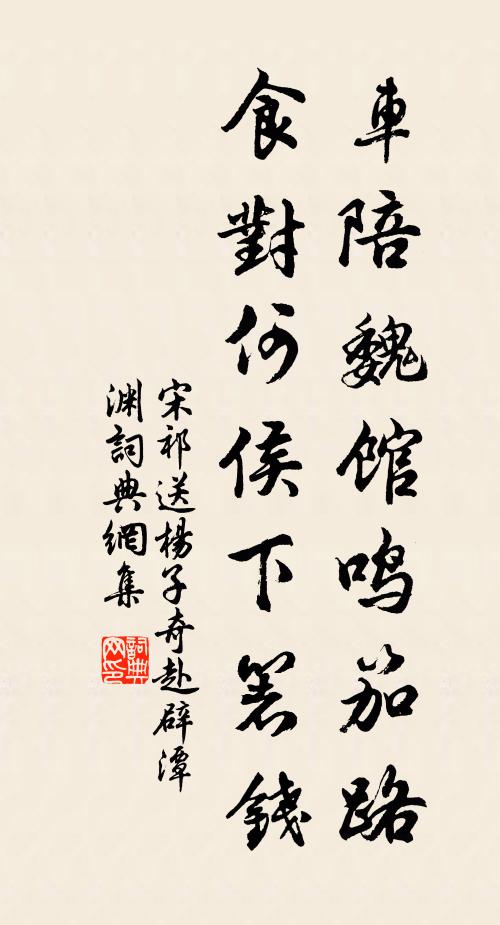 車陪魏館鳴笳路
食對何侯下箸錢
宋祁送楊子奇赴辟潭
渊詞典網集
詞典
网印